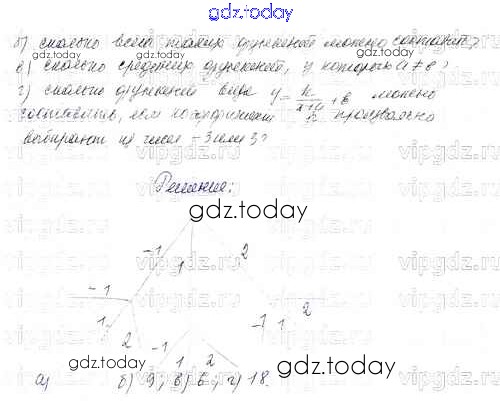 gdz.today
б) сколько всего таких функций можно составить?
gdz.today
в) сколько среди них функций, у которых a ≠ b;
г) сколько функций вида y = k/(x+a) + b можно
составить, если коэффициент k произвольно
выбирают из чисел −3 или 3?
Решение:
gdz.today
-1 1 2
-1 2
1 2 -1 -1 1
1 2
gdz.today gdz.today
а) б) 9; в) 6; г) 18.